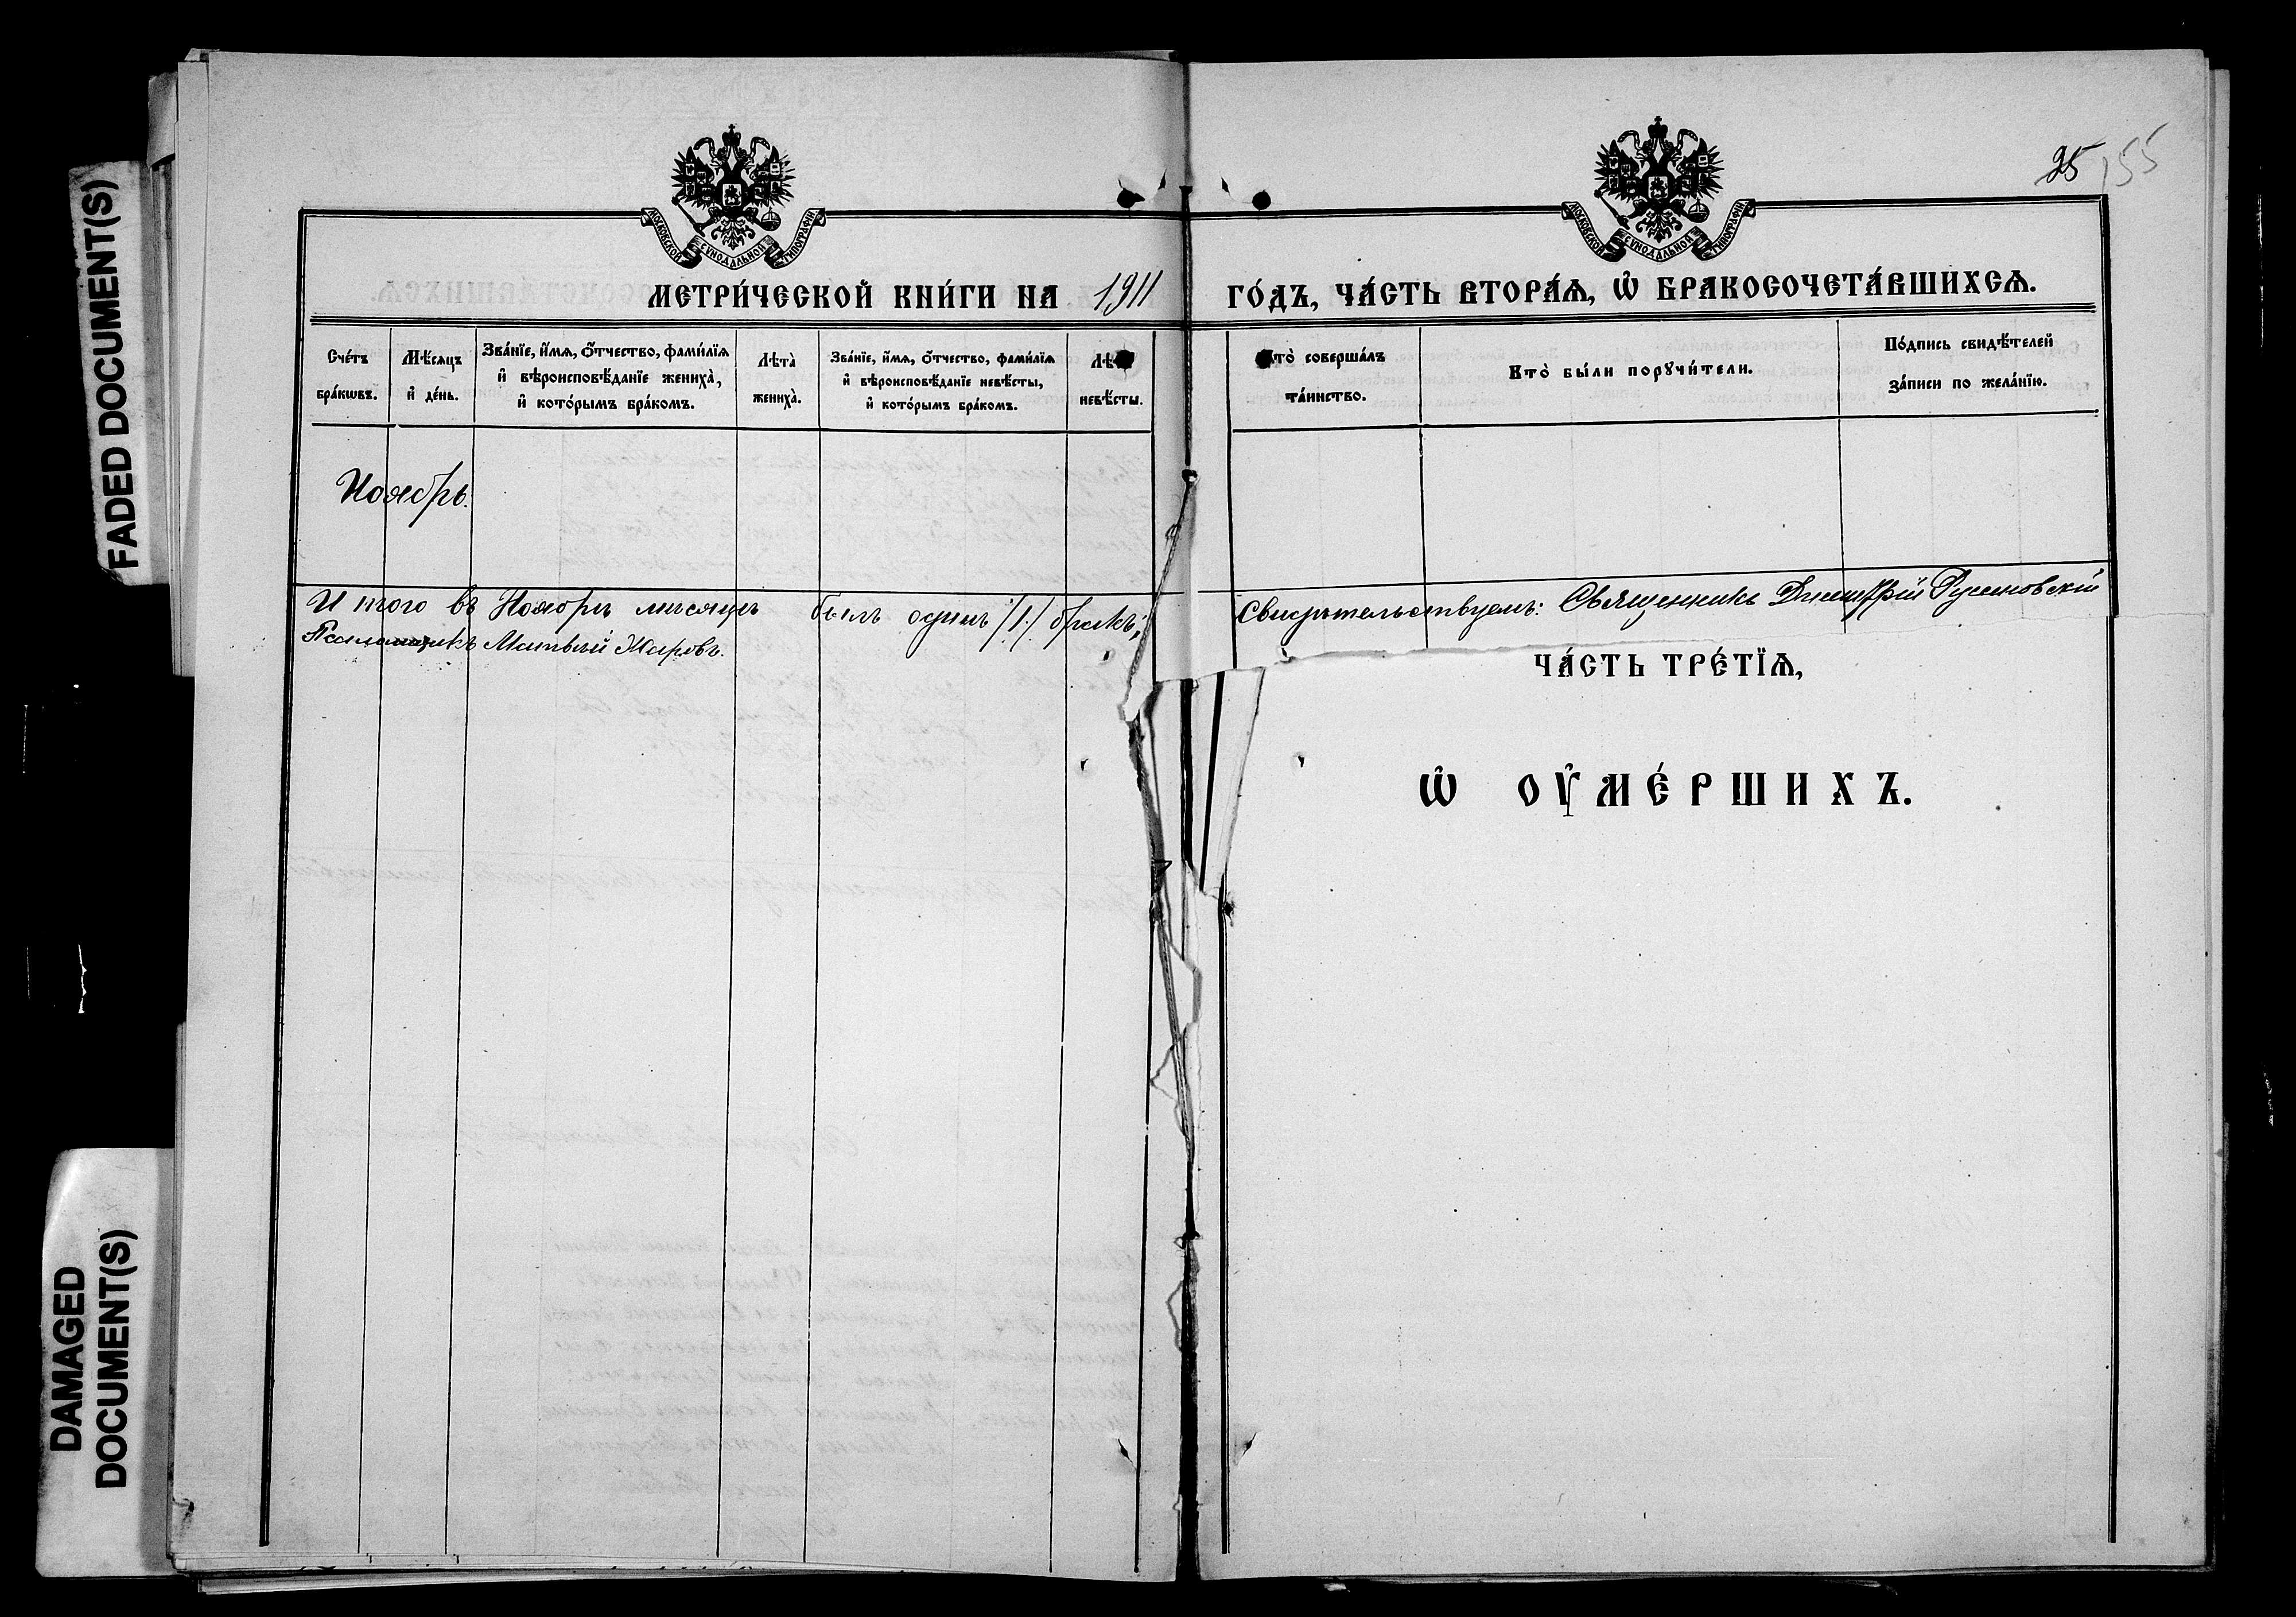 FADED DOCUMENT(S)
DAMAGED
DOCUMENT(S)
25 155
МОСКОВСКОЙ СѴНОДАЛЬНОЙ ТИПОГРАФІИ
МОСКОВСКОЙ СѴНОДАЛЬНОЙ ТИПОГРАФІИ
МЕТРИ́ЧЕСКОЙ КНИ́ГИ НА 1911 ГО́ДЪ, ЧА́СТЬ ВТОРА́Ѧ, Ѽ БРАКОСОЧЕТА́ВШИХСѦ.
Сче́тъ
бра́кѡвъ.
Мѣ́сяцъ
и҆ де́нь.
Зва́нїе, и҆́мѧ, ѻ҆́тчество, фами́лїѧ
и҆ вѣроисповѣ́данїе жениха̀,
и҆ кото́рымъ бра́комъ.
Лѣта̀
жениха̀.
Зва́нїе, и҆́мѧ, ѻ҆́тчество, фами́лїѧ
и҆ вѣроисповѣ́данїе невѣ́сты,
и҆ кото́рымъ бра́комъ.
невѣ́сты.
совершáлъ
та́инство.
Кто̀ бы́ли порꙋчи́тели.
По́дпись свидѣ́телей
за́писи по жела́нїю.
Ноябрь.
Итого въ Ноябрѣ мѣсяцѣ былъ одинъ /1/ бракъ, Свидѣтельствуемъ: Священникъ Димитрій Румновскій
Псаломщикъ Матвѣй Жаровъ.
ЧА́СТЬ ТРЕ́ТЇѦ,
Ѽ ОУ҆МЕ́РШИХЪ.